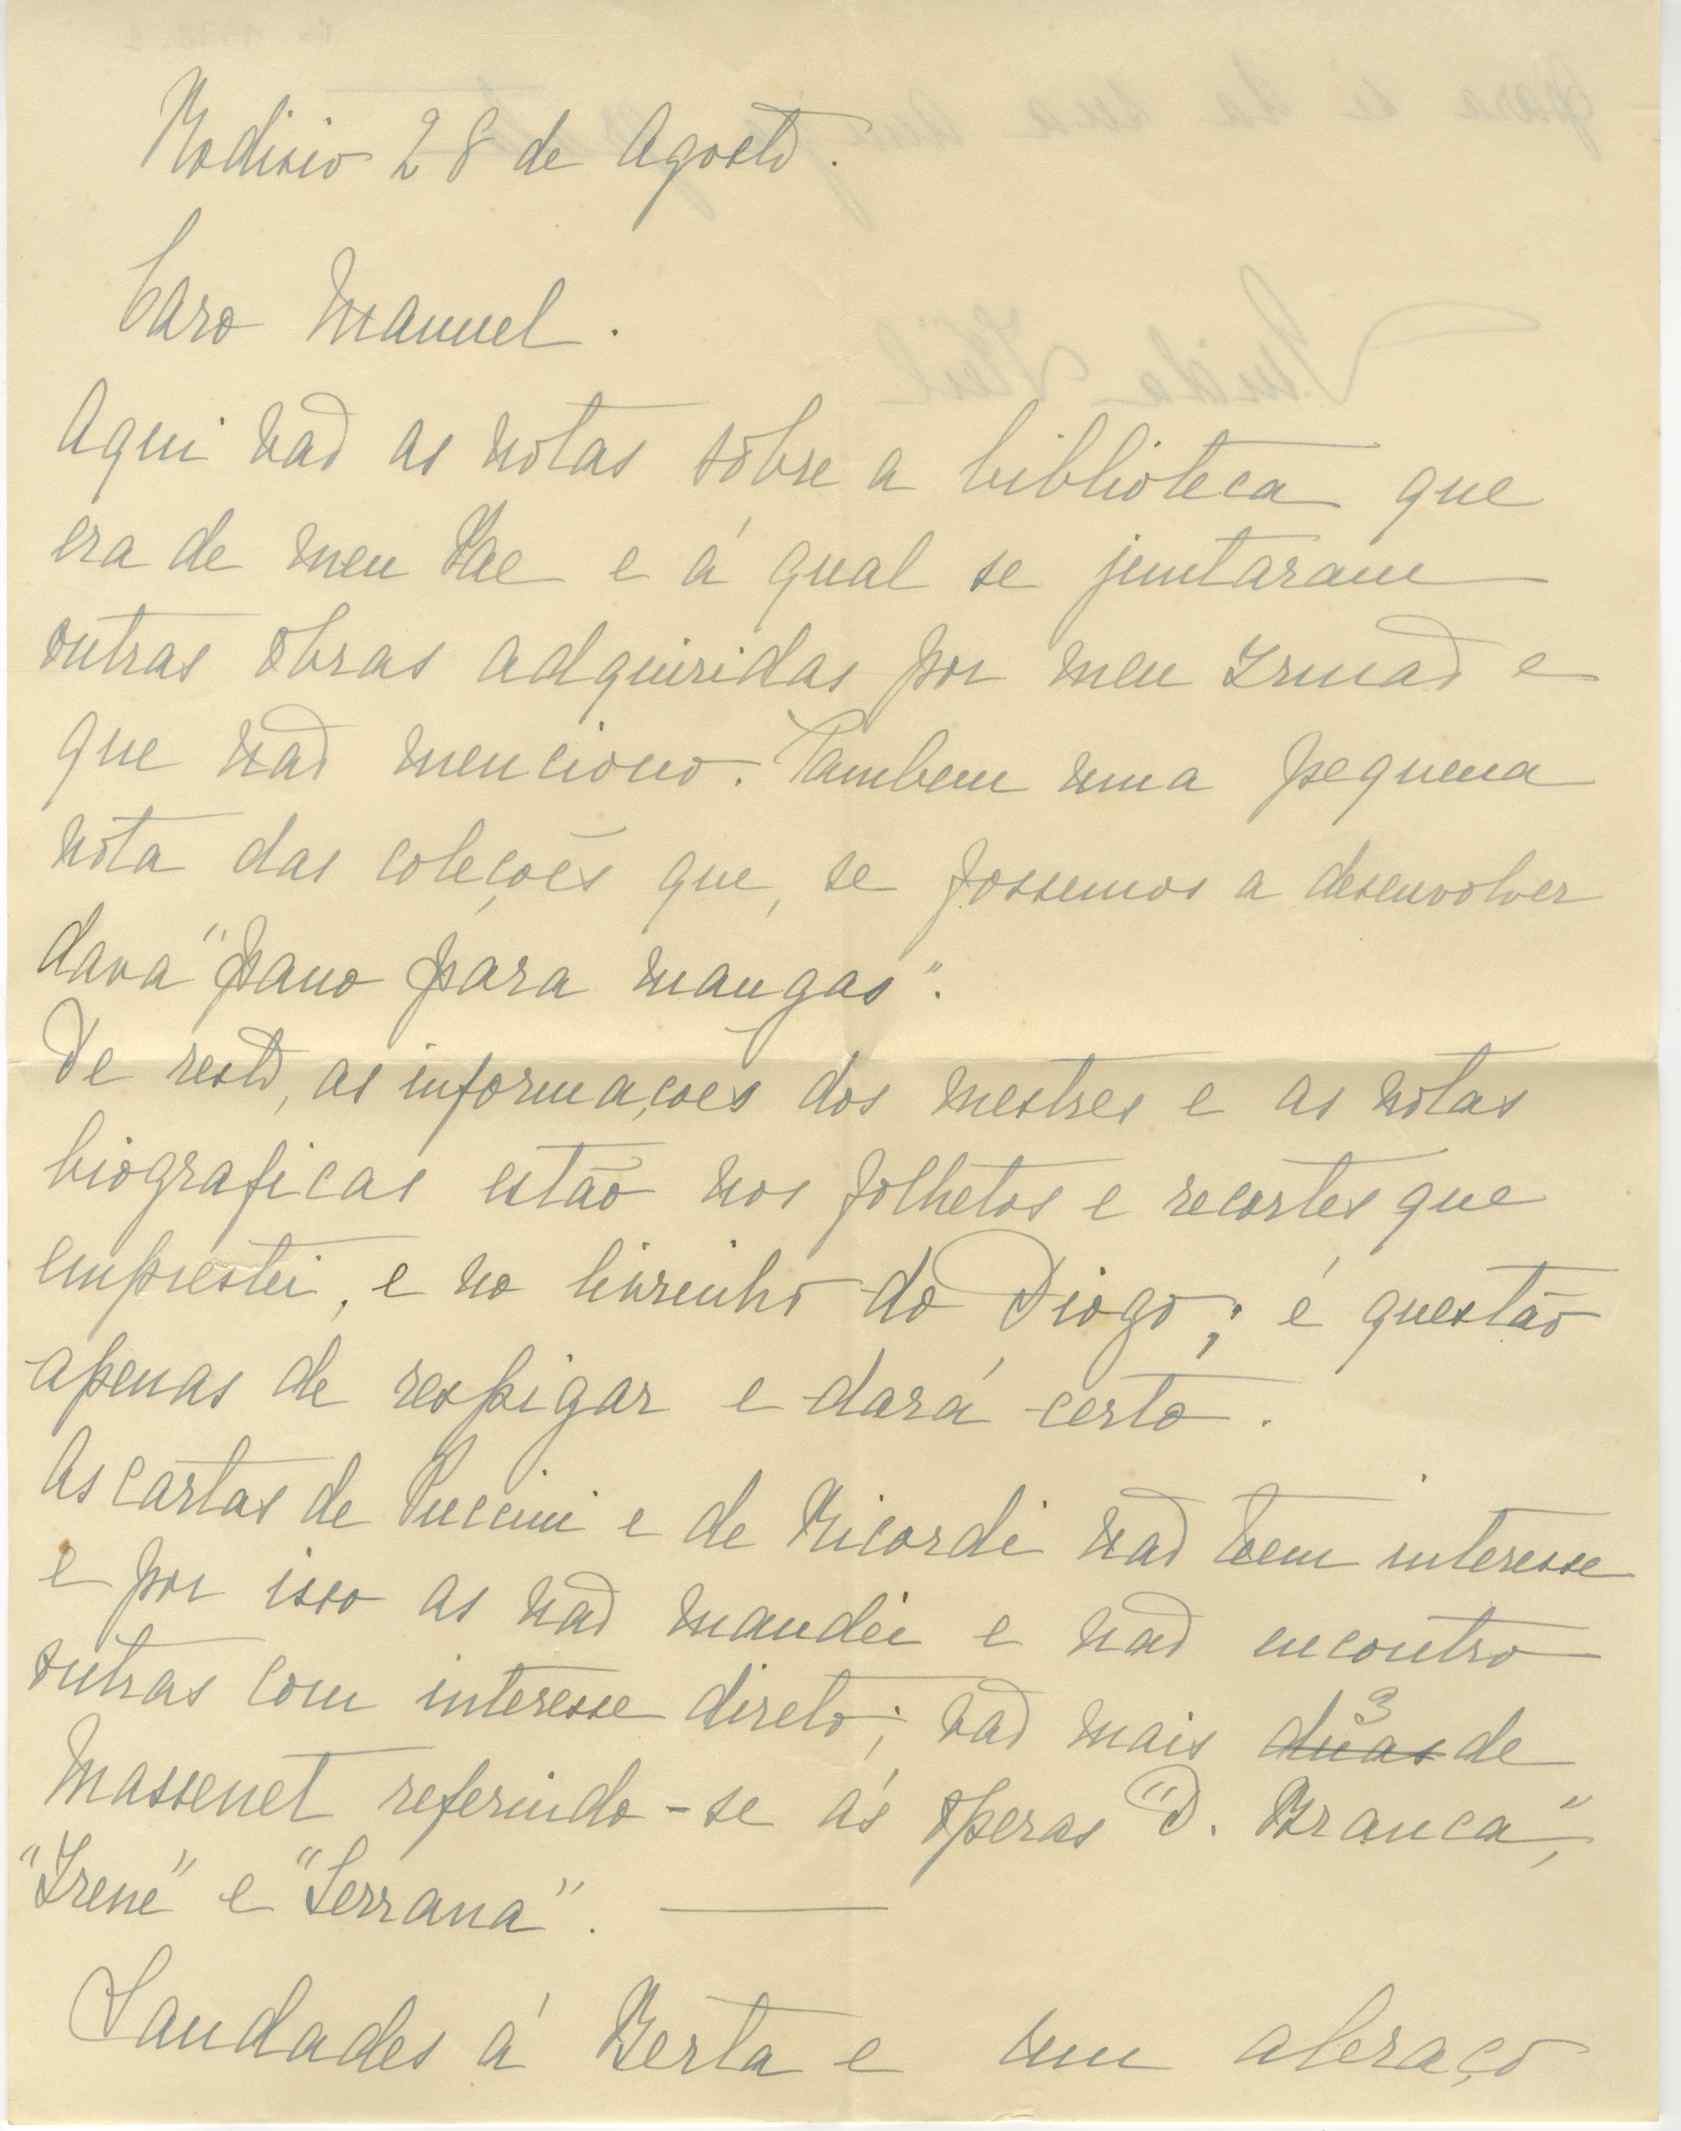 Rodisio 28 de Agosto.
Caro Manuel.
Aqui vaõ as notas sôbre a biblioteca que
era de meu Pae e á qual se juntaram
outras obras adquiridas por meu Irmaõ e
que naõ menciono. Tambem uma pequena
nota das coleçoẽs que, se fossemos a desenvolver
dava "pano para mangas".
De resto, as informaçoes dos mestres e as notas
biograficas estão nos folhetos e recortes que
emprestei, e no livrinho do Diogo; é questão
apenas de respigar e dará certo.
As cartas de Puccini e de Ricordi naõ teem interesse
e por isso as naõ mandei e naõ encontro
outras com interesse direto; vaõ mais duas 3 de
Massenet referindo-se ás operas "D. Branca",
"Irene" e "Serrana".
Saudades á Berta e um abraço